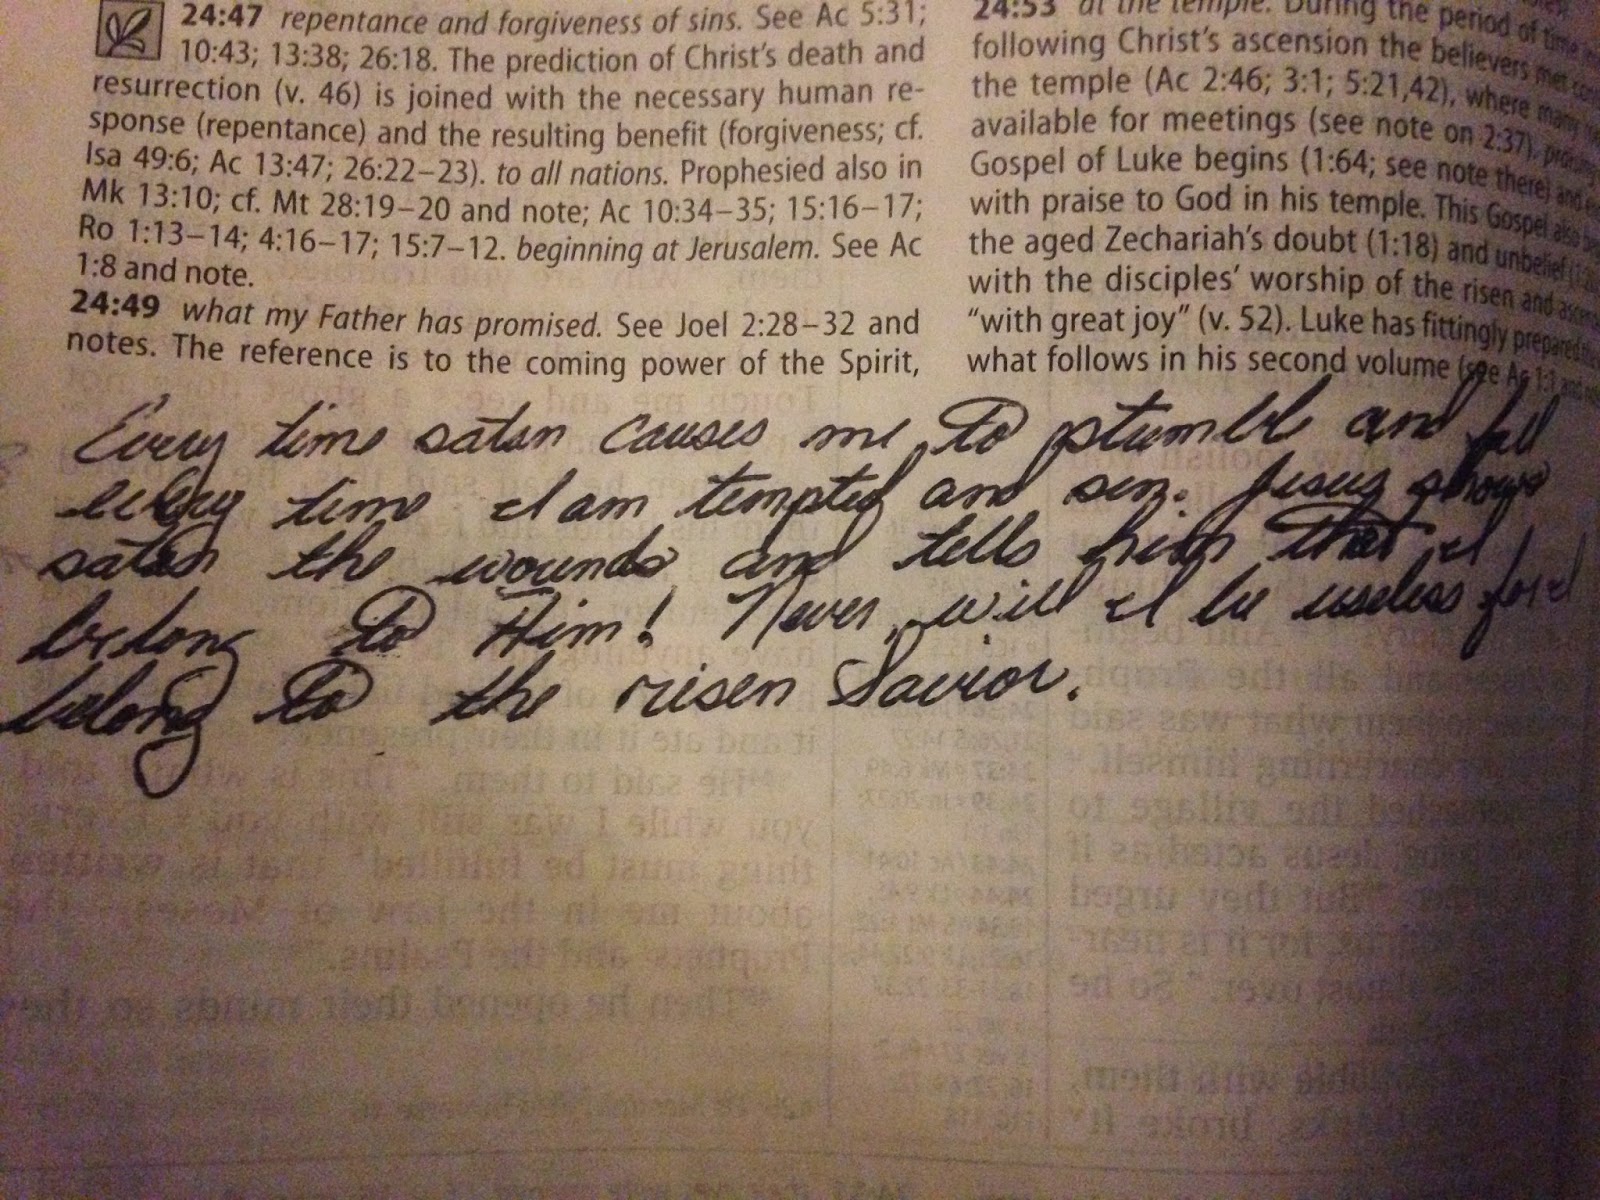 24:47 repentance and forgiveness of sins. See Ac 5:31;
10:43; 13:38; 26:18. The prediction of Christ's death and
resurrection (v. 46) is joined with the necessary human re-
sponse (repentance) and the resulting benefit (forgiveness; cf.
Isa 49:6; Ac 13:47; 26:22–23). to all nations. Prophesied also in
Mk 13:10; cf. Mt 28:19–20 and note; Ac 10:34–35; 15:16–17;
Ro 1:13–14; 4:16–17; 15:7–12. beginning at Jerusalem. See Ac
1:8 and note.
24:49 what my Father has promised. See Joel 2:28–32 and
notes. The reference is to the coming power of the Spirit,
24:53 at the temple. During the period of time
following Christ's ascension the believers met
the temple (Ac 2:46; 3:1; 5:21,42), where many
available for meetings (see note on 2:37).
Gospel of Luke begins (1:64; see note there) and
with praise to God in his temple. This Gospel also
the aged Zechariah's doubt (1:18) and unbelief
with the disciples' worship of the risen and
"with great joy" (v. 52). Luke has fittingly prepared
what follows in his second volume (see Ac 1:1 and
Every time satan causes me to stumble and fall
every time I am tempted and sin. Jesus shows
satan the wounds and tells him that I
belong to Him! Never will I be useless for I
belong to the risen Savior.